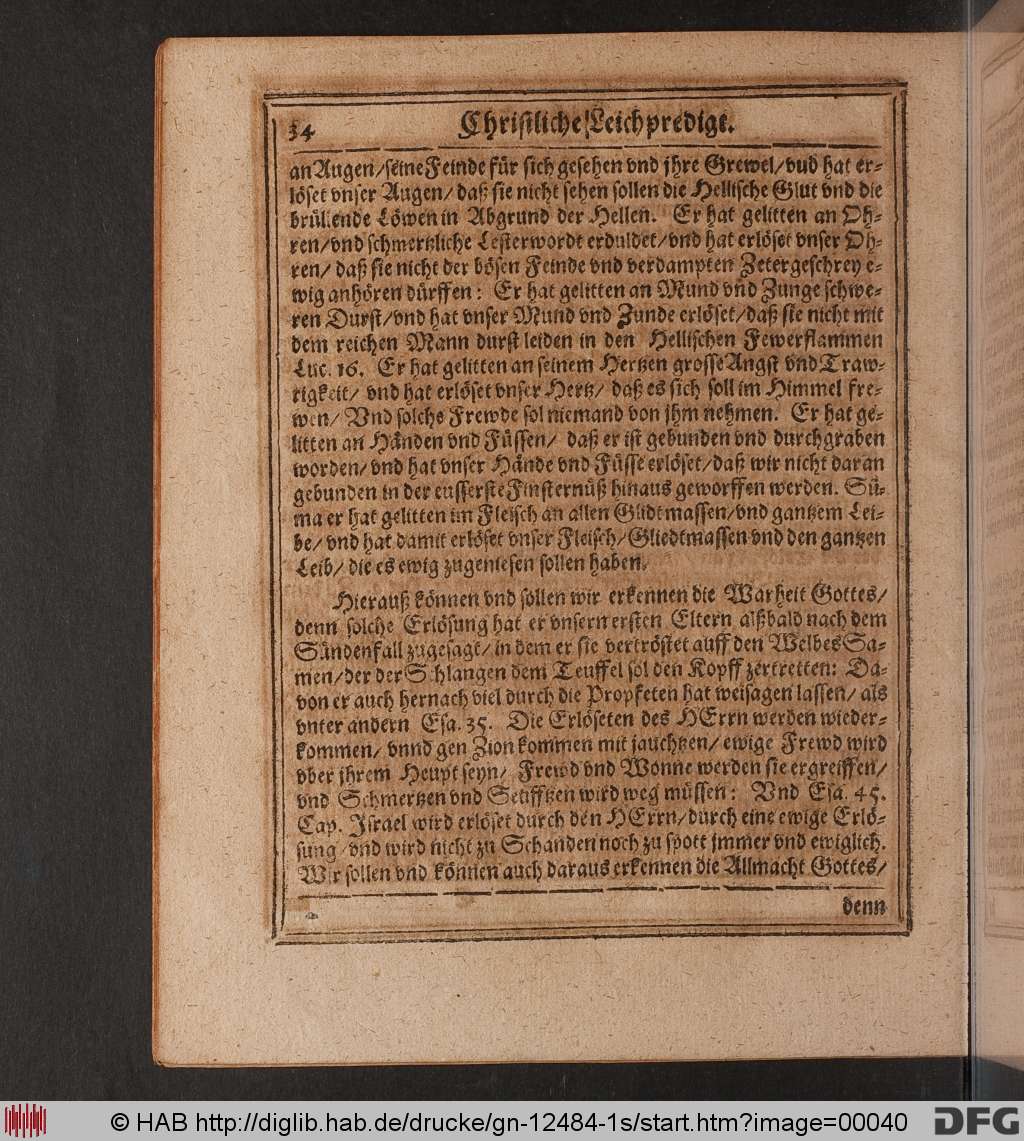 34 Christliche Leichpredigt.
an Augen/seine Feinde für sich gesehen vnd jhre Grewel/vud hat er-
löset vnser Augen/ daß sie nicht sehen sollen die Hellische Glut vnd die
brüllende Löwen in Abgrund der Hellen. Er hat gelitten an Oh-
ren/vnd schmertzliche Lesterwordt erduldet/vnd hat erlöset vnser Oh-
ren/ daß sie nicht der bösen Feinde vnd verdampten Zetergeschrey e-
wig anhören dürffen: Er hat gelitten an Mund vnd Zunge schwe-
ren Durst/vnd hat vnser Mund vnd Zunde erlöset/daß sie nicht mit
dem reichen Mann durst leiden in den Hellischen Fewerflammen
Luc. 16. Er hat gelitten an seinem Hertzen grosse Angst vnd Traw-
rigkeit/ vnd hat erlöset vnser Hertz/ daß es sich soll im Himmel fre-
wen/ Vnd solche Frewde sol niemand von jhm nehmen. Er hat ge-
litten an Händen vnd Füssen/ daß er ist gebunden vnd durchgraben
worden/ vnd hat vnser Hände vnd Füsse erlöset/daß wir nicht daran
gebunden in der eusserste Finsternüß hinaus geworffen werden. Sü-
ma er hat gelitten im Fleisch an allen Glidtmassen/vnd gantzem Lei-
be/ vnd hat damit erlöset vnser Fleisch/Gliedtmassen vnd den gantzen
Leib/ die es ewig zugeniesen sollen haben.
Hierauß können vnd sollen wir erkennen die Warheit Gottes/
denn solche Erlösung hat er vnsern ersten Eltern alßbald nach dem
Sündenfall zugesagt/ in dem er sie vertröstet auff den Weibes Sa-
men/der der Schlangen dem Teuffel sol den Kopff zertretten: Da-
von er auch hernach viel durch die Propheten hat weisagen lassen/ als
vnter andern Esa. 35. Die Erlöseten des HErrn werden wieder-
kommen/ vnnd gen Zion kommen mit jauchtzen/ ewige Frewd wird
vber jhrem Heupt seyn/ Frewd vnd Wonne werden sie ergreiffen/
vnd Schmertzen vnd Seufftzen wird weg müssen: Vnd Esa. 45.
Cap. Israel wird erlöset durch den HErrn/durch eine ewige Erlö-
sung/vnd wird nicht zu Schanden noch zu spott jmmer vnd ewiglich.
Wir sollen vnd können auch daraus erkennen die Allmacht Gottes/
denn
© HAB http://diglib.hab.de/drucke/gn-12484-1s/start.htm?image=00040
DFG